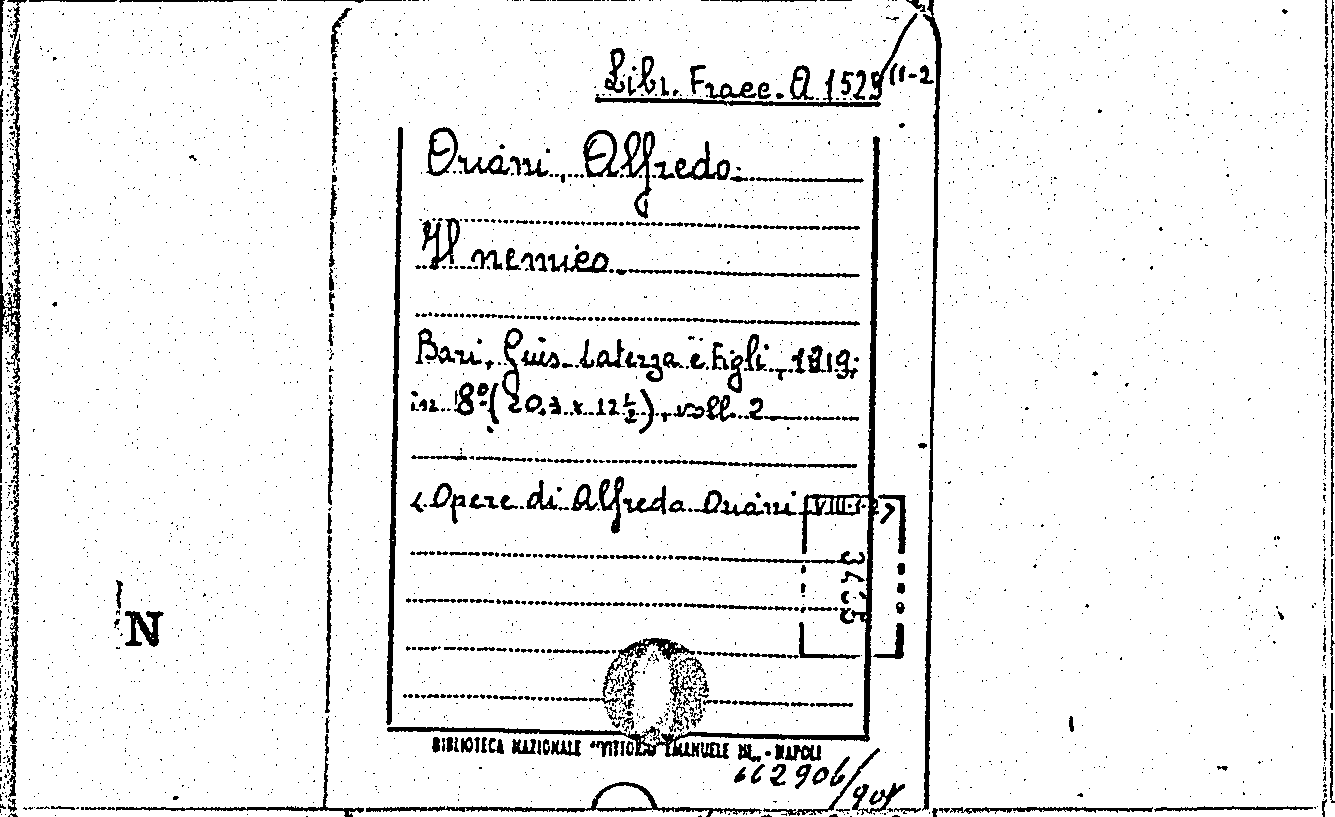 Libr. Fracc. A 1529 (1-2
Oriani, Alfredo.
Il nemico.
Bari, Gius. Laterza e Figli, 1919;
in 8º (20.3 x 12 ½), voll. 2
< Opere di Alfredo Oriani VIII-1-2 >
N
BIBLIOTECA NAZIONALE "VITTORIO EMANUELE III" - NAPOLI
662906/907